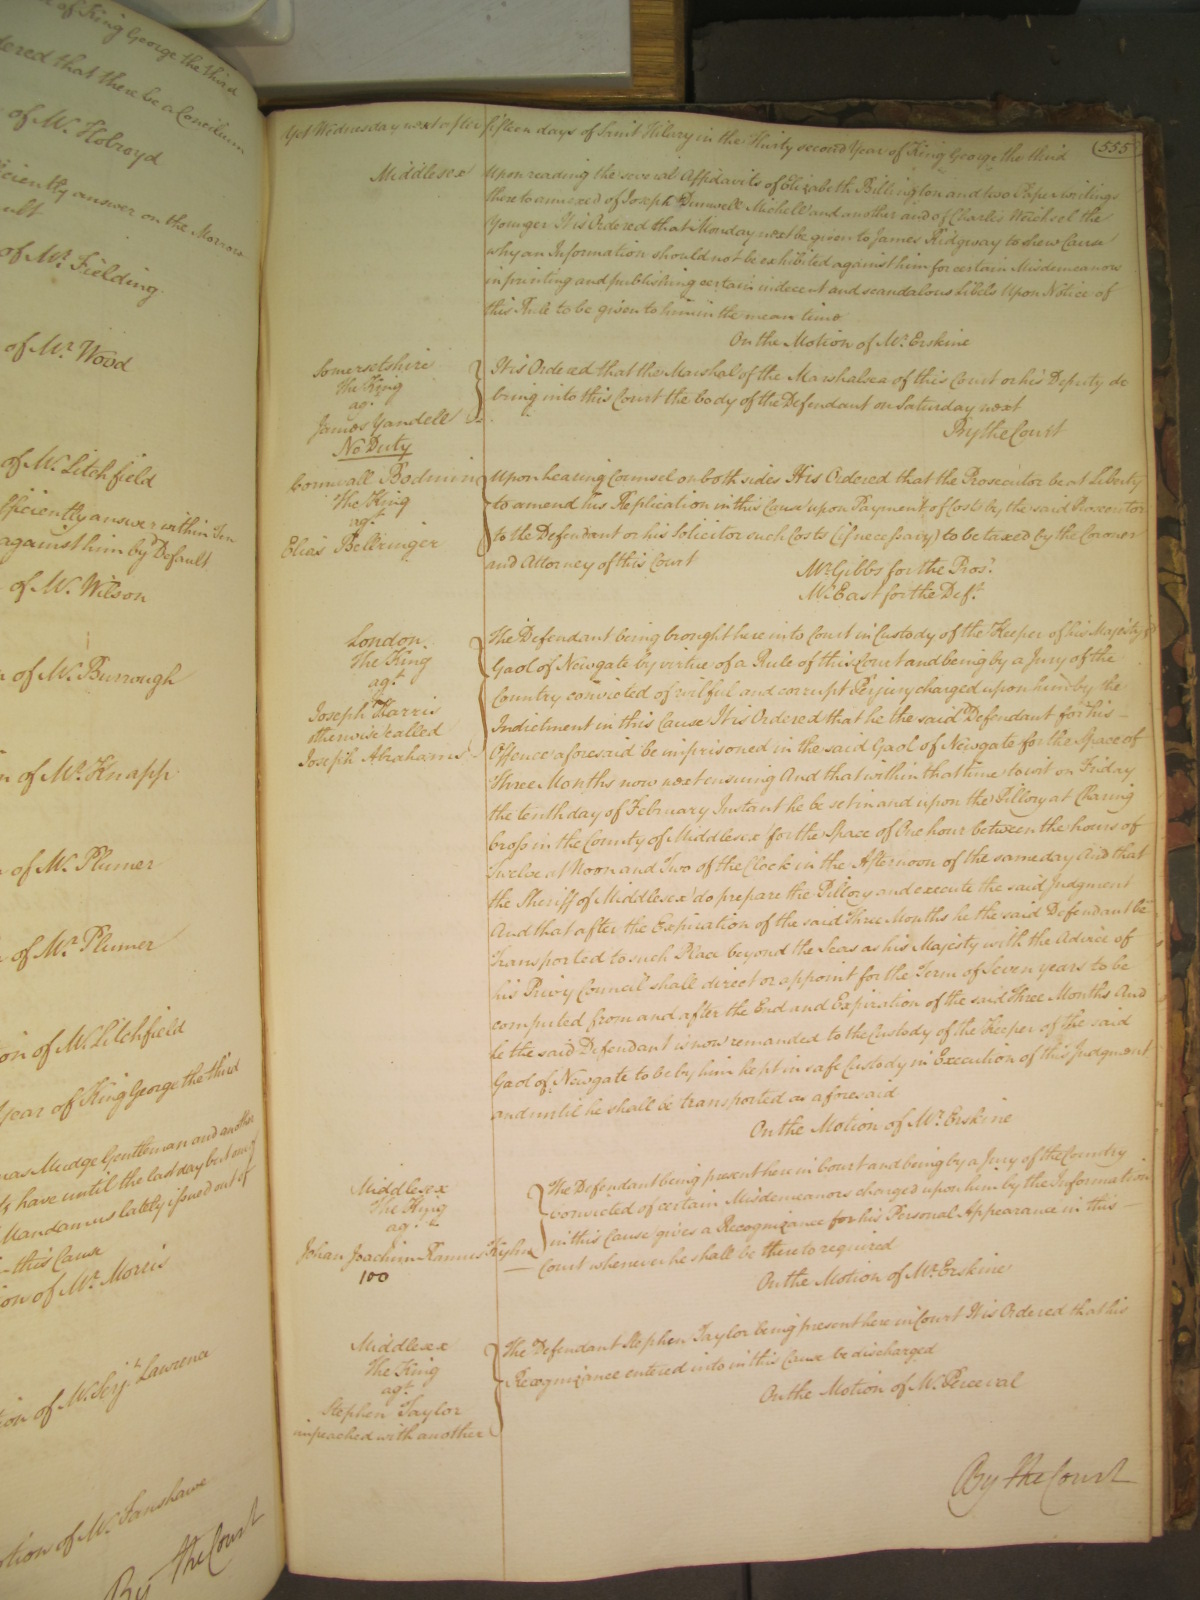 d of King George the third
dered that there be a Concilium
of Mr. Holroyd
ficiently answer on the Morrow
ault
of Mr. Fielding
of Mr. Wood
of Mr. Litchfield
fficiently answer within Ten
against him by Default
of Mr. Wilson
of Mr. Burrough
n of Mr. Knapp
of Mr. Plumer
of Mr. Plumer
ion of Mr. Litchfield
Year of King George the third
mas Mudge Gentleman and another
ts have until the last day but one of
Mandamus lately issued out of
this Cause
ion of Mr. Morris
ion of Mr. Serjt. Lawrence
otion of Mr. Fanshawe
By the Court
Yet Wednesday next after fifteen days of Saint Hilary in the Thirty second Year of King George the third
555
Middlesex
Upon reading the several Affidavits of Elizabeth Billington and two Paper writings
thereto annexed of Joseph Michell and another and of Charles Weichsel the
Younger It is Ordered that Monday next be given to James Ridgway to shew Cause
why an Information should not be exhibited against him for certain Misdemeanors
in printing and publishing certain indecent and scandalous Libels Upon Notice of
this Rule to be given to him in the mean time
On the Motion of Mr. Erskine
Somersetshire
The King
agt.
James Yandell
No Duty
It is Ordered that the Marshal of the Marshalsea of this Court or his Deputy do
bring into this Court the body of the Defendant on Saturday next
By the Court
Cornwall Bodmin
The King
agt.
Elias Bellringer
Upon hearing Counsel on both sides It is Ordered that the Prosecutor be at liberty
to amend his Replication in this Cause upon Payment of Costs by the said Prosecutor
to the Defendant or his Solicitor such Costs (if necessary) to be taxed by the Coroner
and Attorney of this Court
Mr. Gibbs for the Pros.
Mr. East for the Deft.
London
The King
agt.
Joseph Harris
otherwise called
Joseph Abrahams
The Defendant being brought here into Court in Custody of the Keeper of his Majesty's
Gaol of Newgate by virtue of a Rule of this Court and being by a Jury of the
Country convicted of wilful and corrupt Perjury charged upon him by the
Indictment in this Cause It is Ordered that he the said Defendant for his
Offence aforesaid be imprisoned in the said Gaol of Newgate for the Space of
Three Months now next ensuing And that within that time to wit on Friday
the tenth day of February Instant he be set in and upon the Pillory at Charing
Cross in the County of Middlesex for the Space of One hour between the hours of
Twelve at Noon and Two of the Clock in the Afternoon of the same day And that
the Sheriff of Middlesex do prepare the Pillory and execute the said Judgment
And that after the Expiration of the said Three Months he the said Defendant be
Transported to such Place beyond the Seas as his Majesty with the Advice of
his Privy Council shall direct or appoint for the Term of Seven years to be
computed from and after the End and Expiration of the said Three Months And
he the said Defendant is now remanded to the Custody of the Keeper of the said
Gaol of Newgate to be by him kept in safe Custody in Execution of this Judgment
and until he shall be transported as aforesaid
On the Motion of Mr. Erskine
Middlesex
The King
agt.
Johan Joachim Ramus Kyhn
100
The Defendant being present here in Court and being by a Jury of the Country
convicted of certain Misdemeanors charged upon him by the Information
in this Cause gives a Recognizance for his Personal Appearance in this
Court whenever he shall be thereto required
On the Motion of Mr. Erskine
Middlesex
The King
agt.
Stephen Taylor
impeached with another
The Defendant Stephen Taylor being present here in Court It is Ordered that his
Recognizance entered into in this Cause be discharged
On the Motion of Mr. Perceval
By the Court